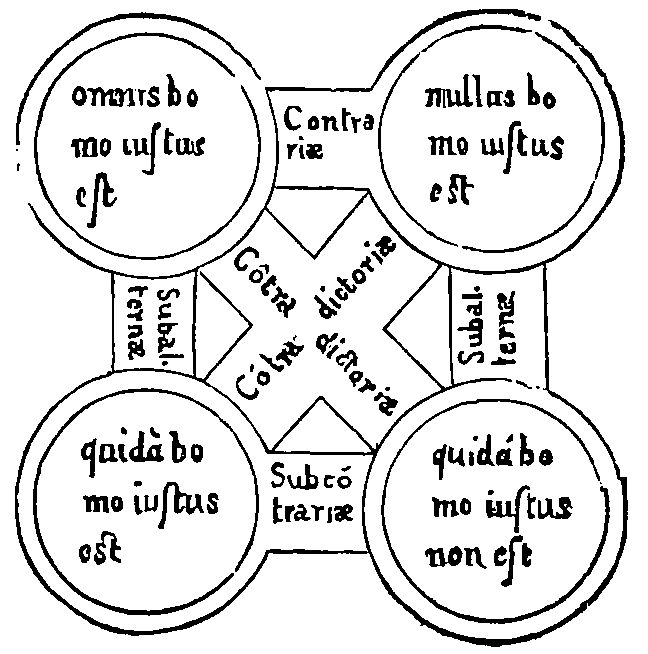 omnis ho
mo iuſtus
eſt
Contra
riæ
nullus ho
mo iuſtus
eſt
Subal.
ternæ
Côtra
dictoriæ
Cótra
dictoriæ
Subal.
ternæ
quidà ho
mo iuſtus
eſt
Subcó
trariæ
quidá ho
mo iuſtus
non eſt